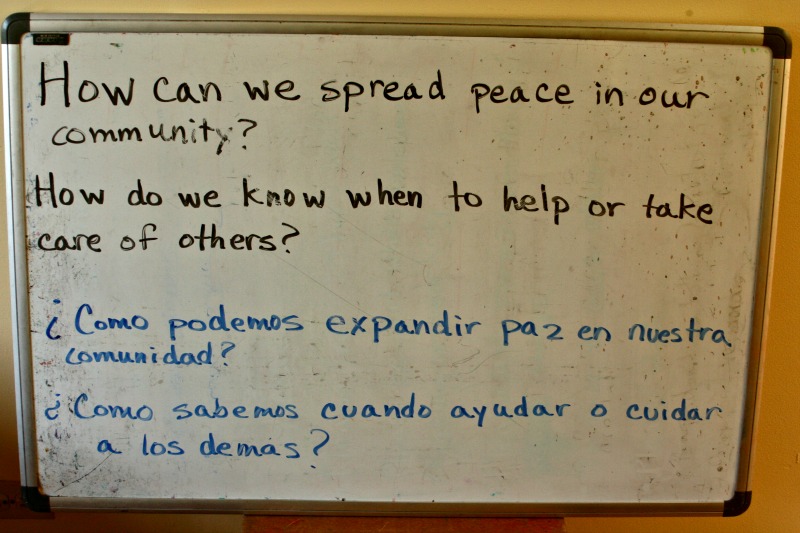 How can we spread peace in our
community?
How do we know when to help or take
care of others?
¿Como podemos expandir paz en nuestra
comunidad?
¿Como sabemos cuando ayudar o cuidar
a los demas?